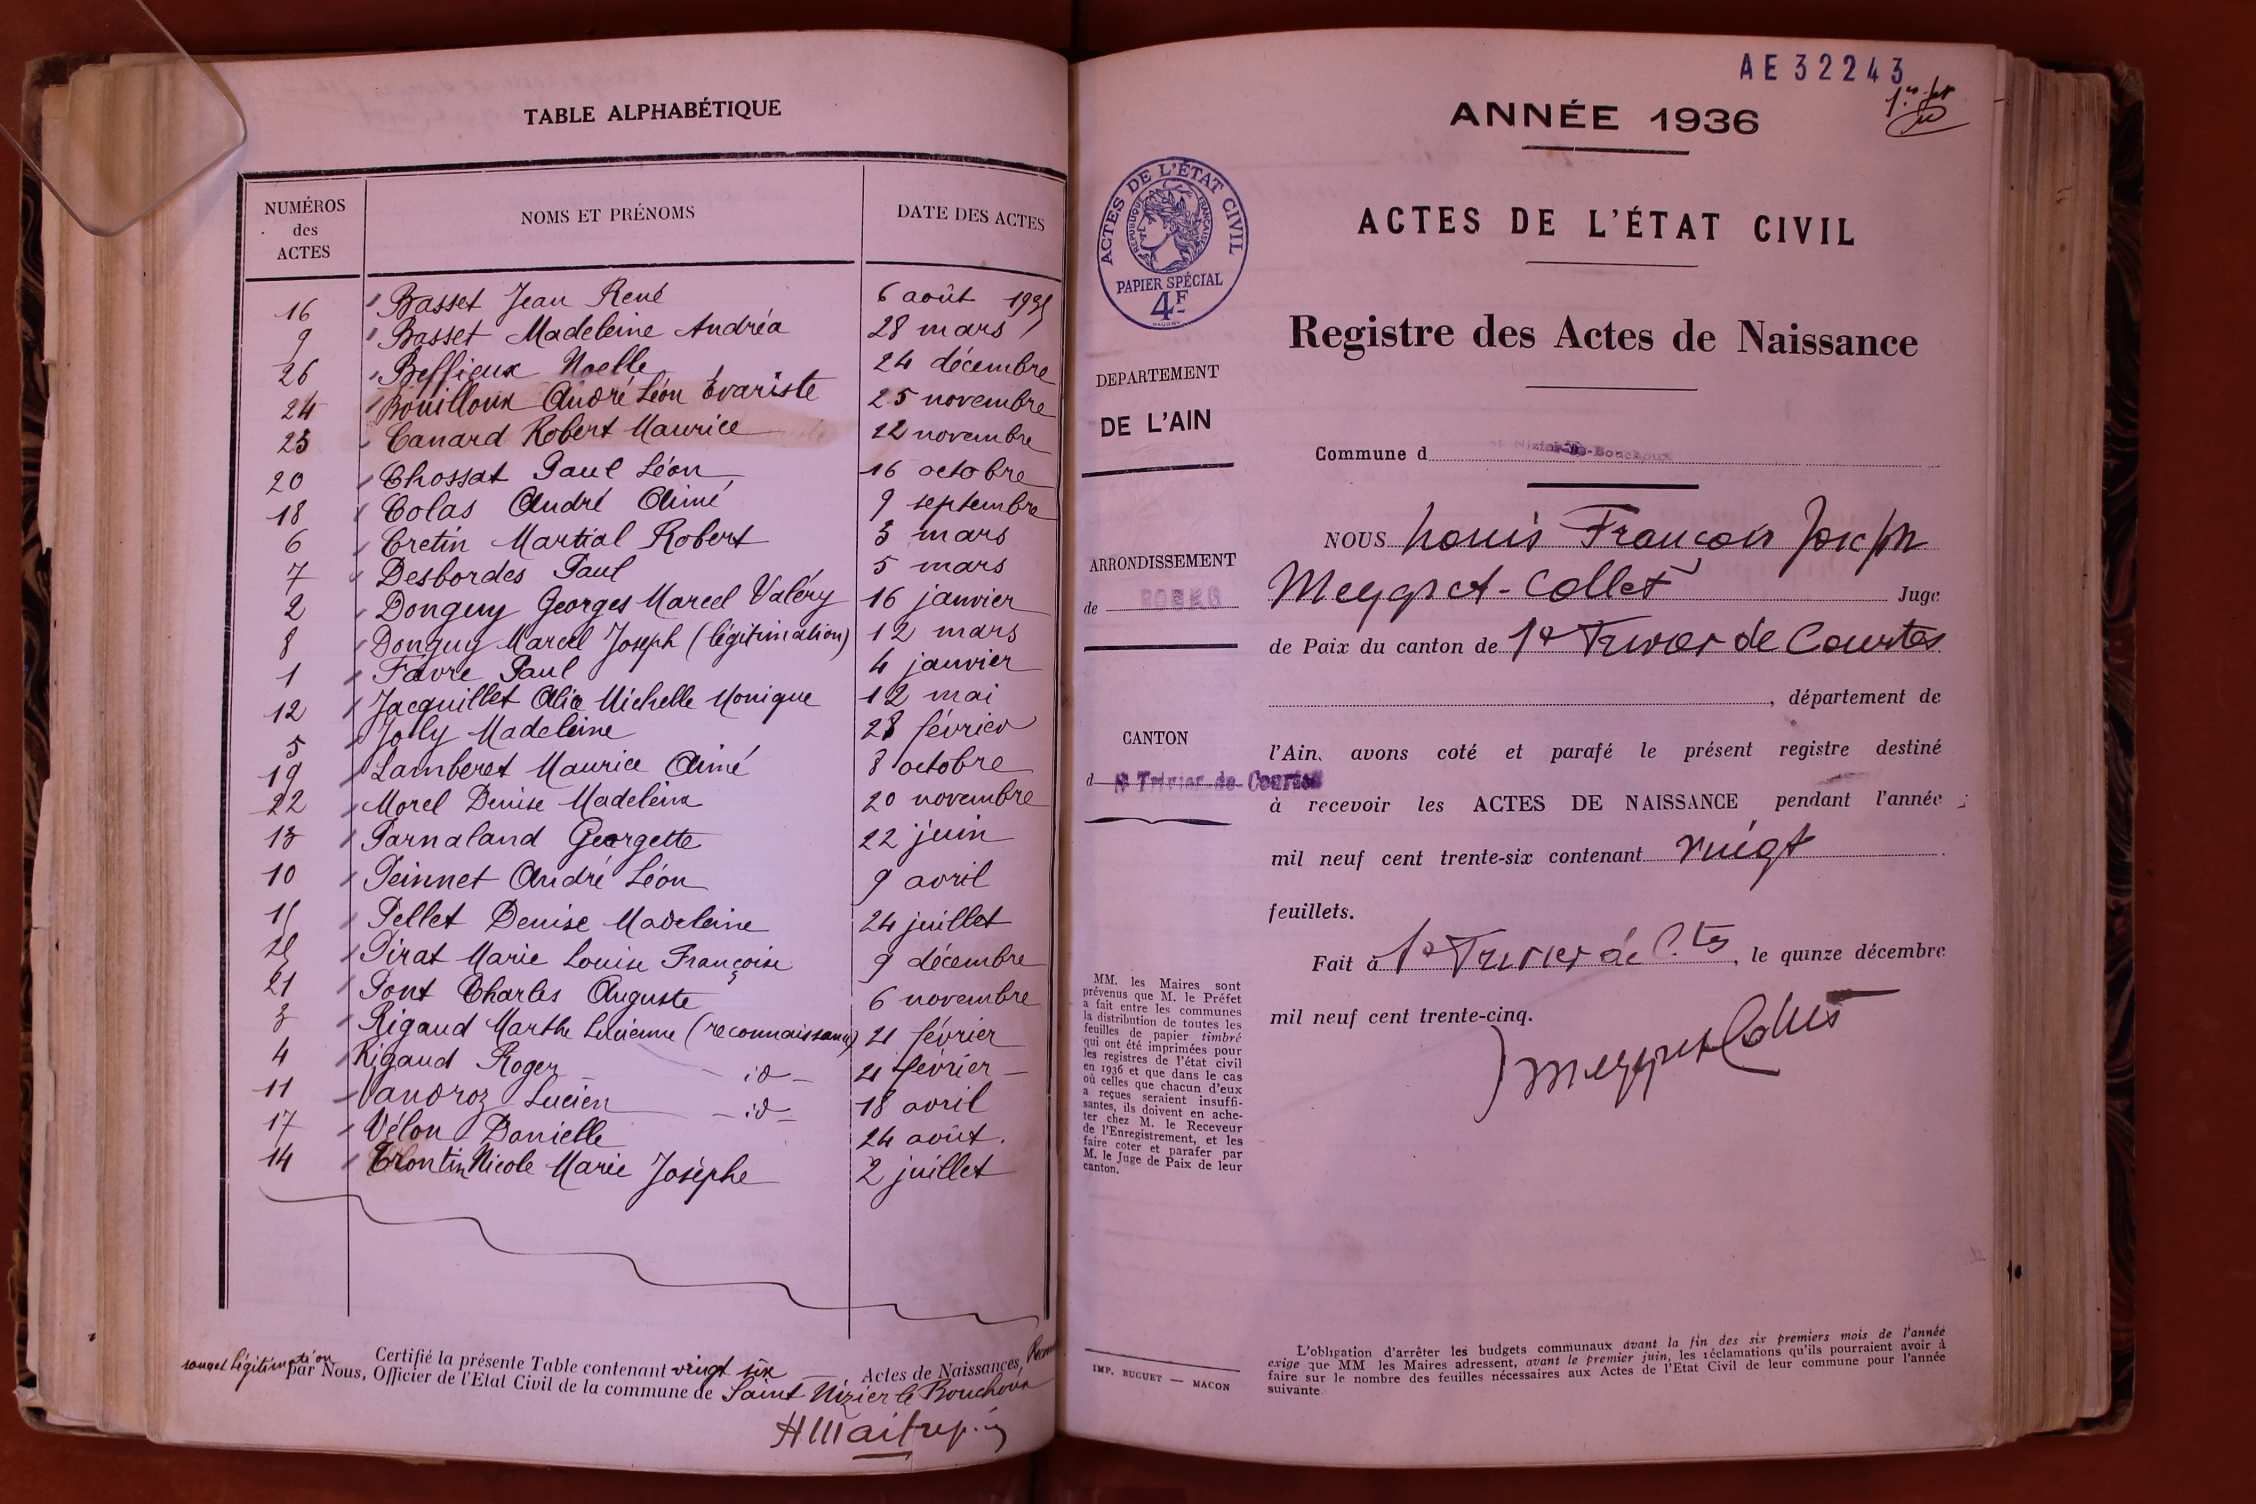 TABLE ALPHABÉTIQUE
NUMÉROS des ACTES NOMS ET PRÉNOMS DATE DES ACTES
16 Basset Jean René 6 août 1935
9 Basset Madeleine Andréa 28 mars
26 Beffieux Noelle 24 décembre
24 Bouilloux André Léon Évariste 25 novembre
23 Canard Robert Maurice 12 novembre
20 Chossat Paul Léon 16 octobre
18 Colas André Aimé 9 septembre
6 Cretin Martial Robert 3 mars
7 Desbordes Paul 5 mars
2 Donguy Georges Marcel Valéry 16 janvier
8 Donguy Marcel Joseph (légitimation) 12 mars
1 Favre Paul 4 janvier
12 Jacquillet Alice Michelle Monique 12 mai
5 Joly Madeleine 28 février
19 Lamberet Maurice Aimé 8 octobre
22 Morel Denise Madeleine 20 novembre
13 Parnaland Georgette 22 juin
10 Peinnet André Léon 9 avril
15 Pellet Denise Madeleine 24 juillet
25 Pirat Marie Louise Françoise 9 décembre
21 Pont Charles Auguste 6 novembre
3 Rigaud Marthe Lucienne (reconnaissance) 21 février
4 Rigaud Roger — id — 21 février —
11 Vandroz Lucien — id — 18 avril
17 Vélon Danielle 24 août.
14 Trontin Nicole Marie Josèphe 2 juillet
Certifié la présente Table contenant vingt six Actes de Naissances,
légitimation par Nous, Officier de l'Etat Civil de la commune de Saint Nizier le Bouchoux
AE32243
ANNÉE 1936
ACTES DE L'ÉTAT CIVIL
RÉPUBLIQUE FRANÇAISE
PAPIER SPÉCIAL
4F
ACTES DE L'ÉTAT CIVIL
Registre des Actes de Naissance
DEPARTEMENT
DE L'AIN
Commune d St Nizier-le-Bouchoux
ARRONDISSEMENT
de BOURG
CANTON
d St Trivier-de-Courtes
NOUS Louis François Joseph
Meygret-Collet Juge
de Paix du canton de St Trivier de Courtes
, département de
l'Ain, avons coté et parafé le présent registre destiné
à recevoir les ACTES DE NAISSANCE pendant l'année
mil neuf cent trente-six contenant vingt
feuillets.
Fait à St Trivier de C.tes, le quinze décembre
mil neuf cent trente-cinq.
Meygret Collet
MM. les Maires sont
prévenus que M. le Préfet
a fait entre les communes
la distribution de toutes les
feuilles de papier timbré
qui ont été imprimées pour
les registres de l'état civil
en 1936 et que dans le cas
où celles que chacun d'eux
a reçues seraient insuffi-
santes, ils doivent en ache-
ter chez M. le Receveur
de l'Enregistrement, et les
faire coter et parafer par
M. le Juge de Paix de leur
canton.
IMP. BUGUET — MACON
L'obligation d'arrêter les budgets communaux avant la fin des six premiers mois de l'année
exige que MM les Maires adressent, avant le premier juin, les réclamations qu'ils pourraient avoir à
faire sur le nombre des feuilles nécessaires aux Actes de l'Etat Civil de leur commune pour l'année
suivante.